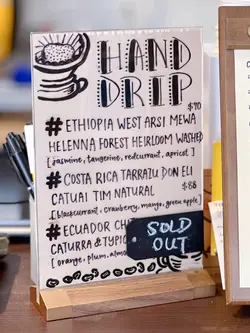 HAND
DRIP
$70
# ETHIOPIA WEST ARSI MEWA
HELENNA FOREST HEIRLOOM WASHED
[jasmine, tangerine, redcurrant, apricot]
# COSTA RICA TARRAZU DON ELI
CATUAI TIM NATURAL
$88
[blackcurrant, cranberry, mango, green apple]
# ECUADOR
CATURRA & TYPIC
[orange, plum,
SOLD
OUT